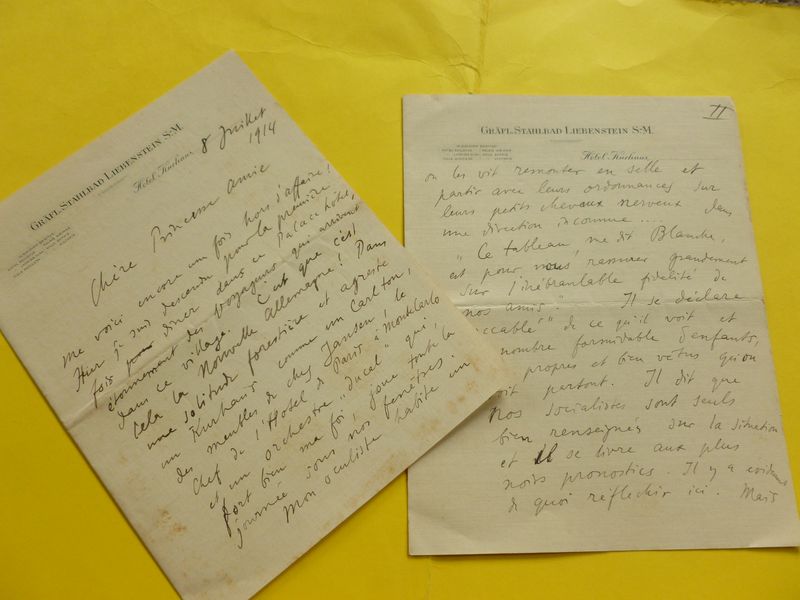 GRÄFL. STAHLBAD LIEBENSTEIN S-M.
Hotel Kurhaus
8 Juillet
1914
Chère Princesse amie
Me voici encore un fois hors d'affaire!
Hier je suis descendu pour la première
fois pour diner dans ce Palace hôtel,
étonnement des voyageurs qui arrivent
dans ce village. C'est que c'est
cela la Nouvelle Allemagne! Dans
une solitude forestière et agreste
un Kurhaus comme un Carlton,
des meubles de chez Jansen, le
Chef de l'Hotel de Paris à Montecarlo
et un orchestre "ducal" qui,
fort bien ma foi, joue toute la
journée sous nos fenêtres.
Mon oculiste habite un
II
GRÄFL. STAHLBAD LIEBENSTEIN S-M.
Hotel Kurhaus
on les vit remonter en selle et
partir avec leurs ordonnances sur
leurs petits chevaux nerveux dans
une direction inconnue ....
"Ce tableau, me dit Blanche,
est pour nous rassurer grandement
sur l'inébranlable fidélité de
nos amis". Il se déclare
de ce qu'il voit et
nombre formidable d'enfants,
propres et bien vêtus qu'on
voit partout. Il dit que
nos socialistes sont seuls
bien renseignés sur la situation
et il se livre aux plus
noirs pronostics. Il y a
de quoi réflechir ici. Mais